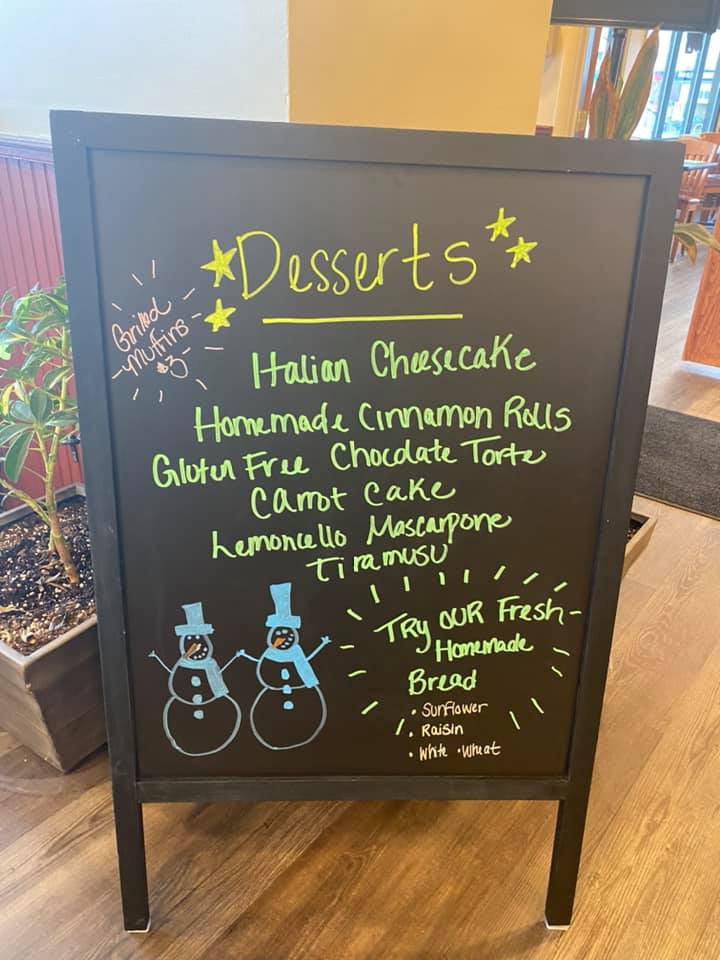 Desserts
Grilled
muffins
$3
Italian Cheesecake
Homemade Cinnamon Rolls
Gluten Free Chocolate Torte
Carrot Cake
Lemoncello Mascarpone
Tiramusu
Try our Fresh-
Homemade
Bread
• Sunflower
• Raisin
• White • Wheat